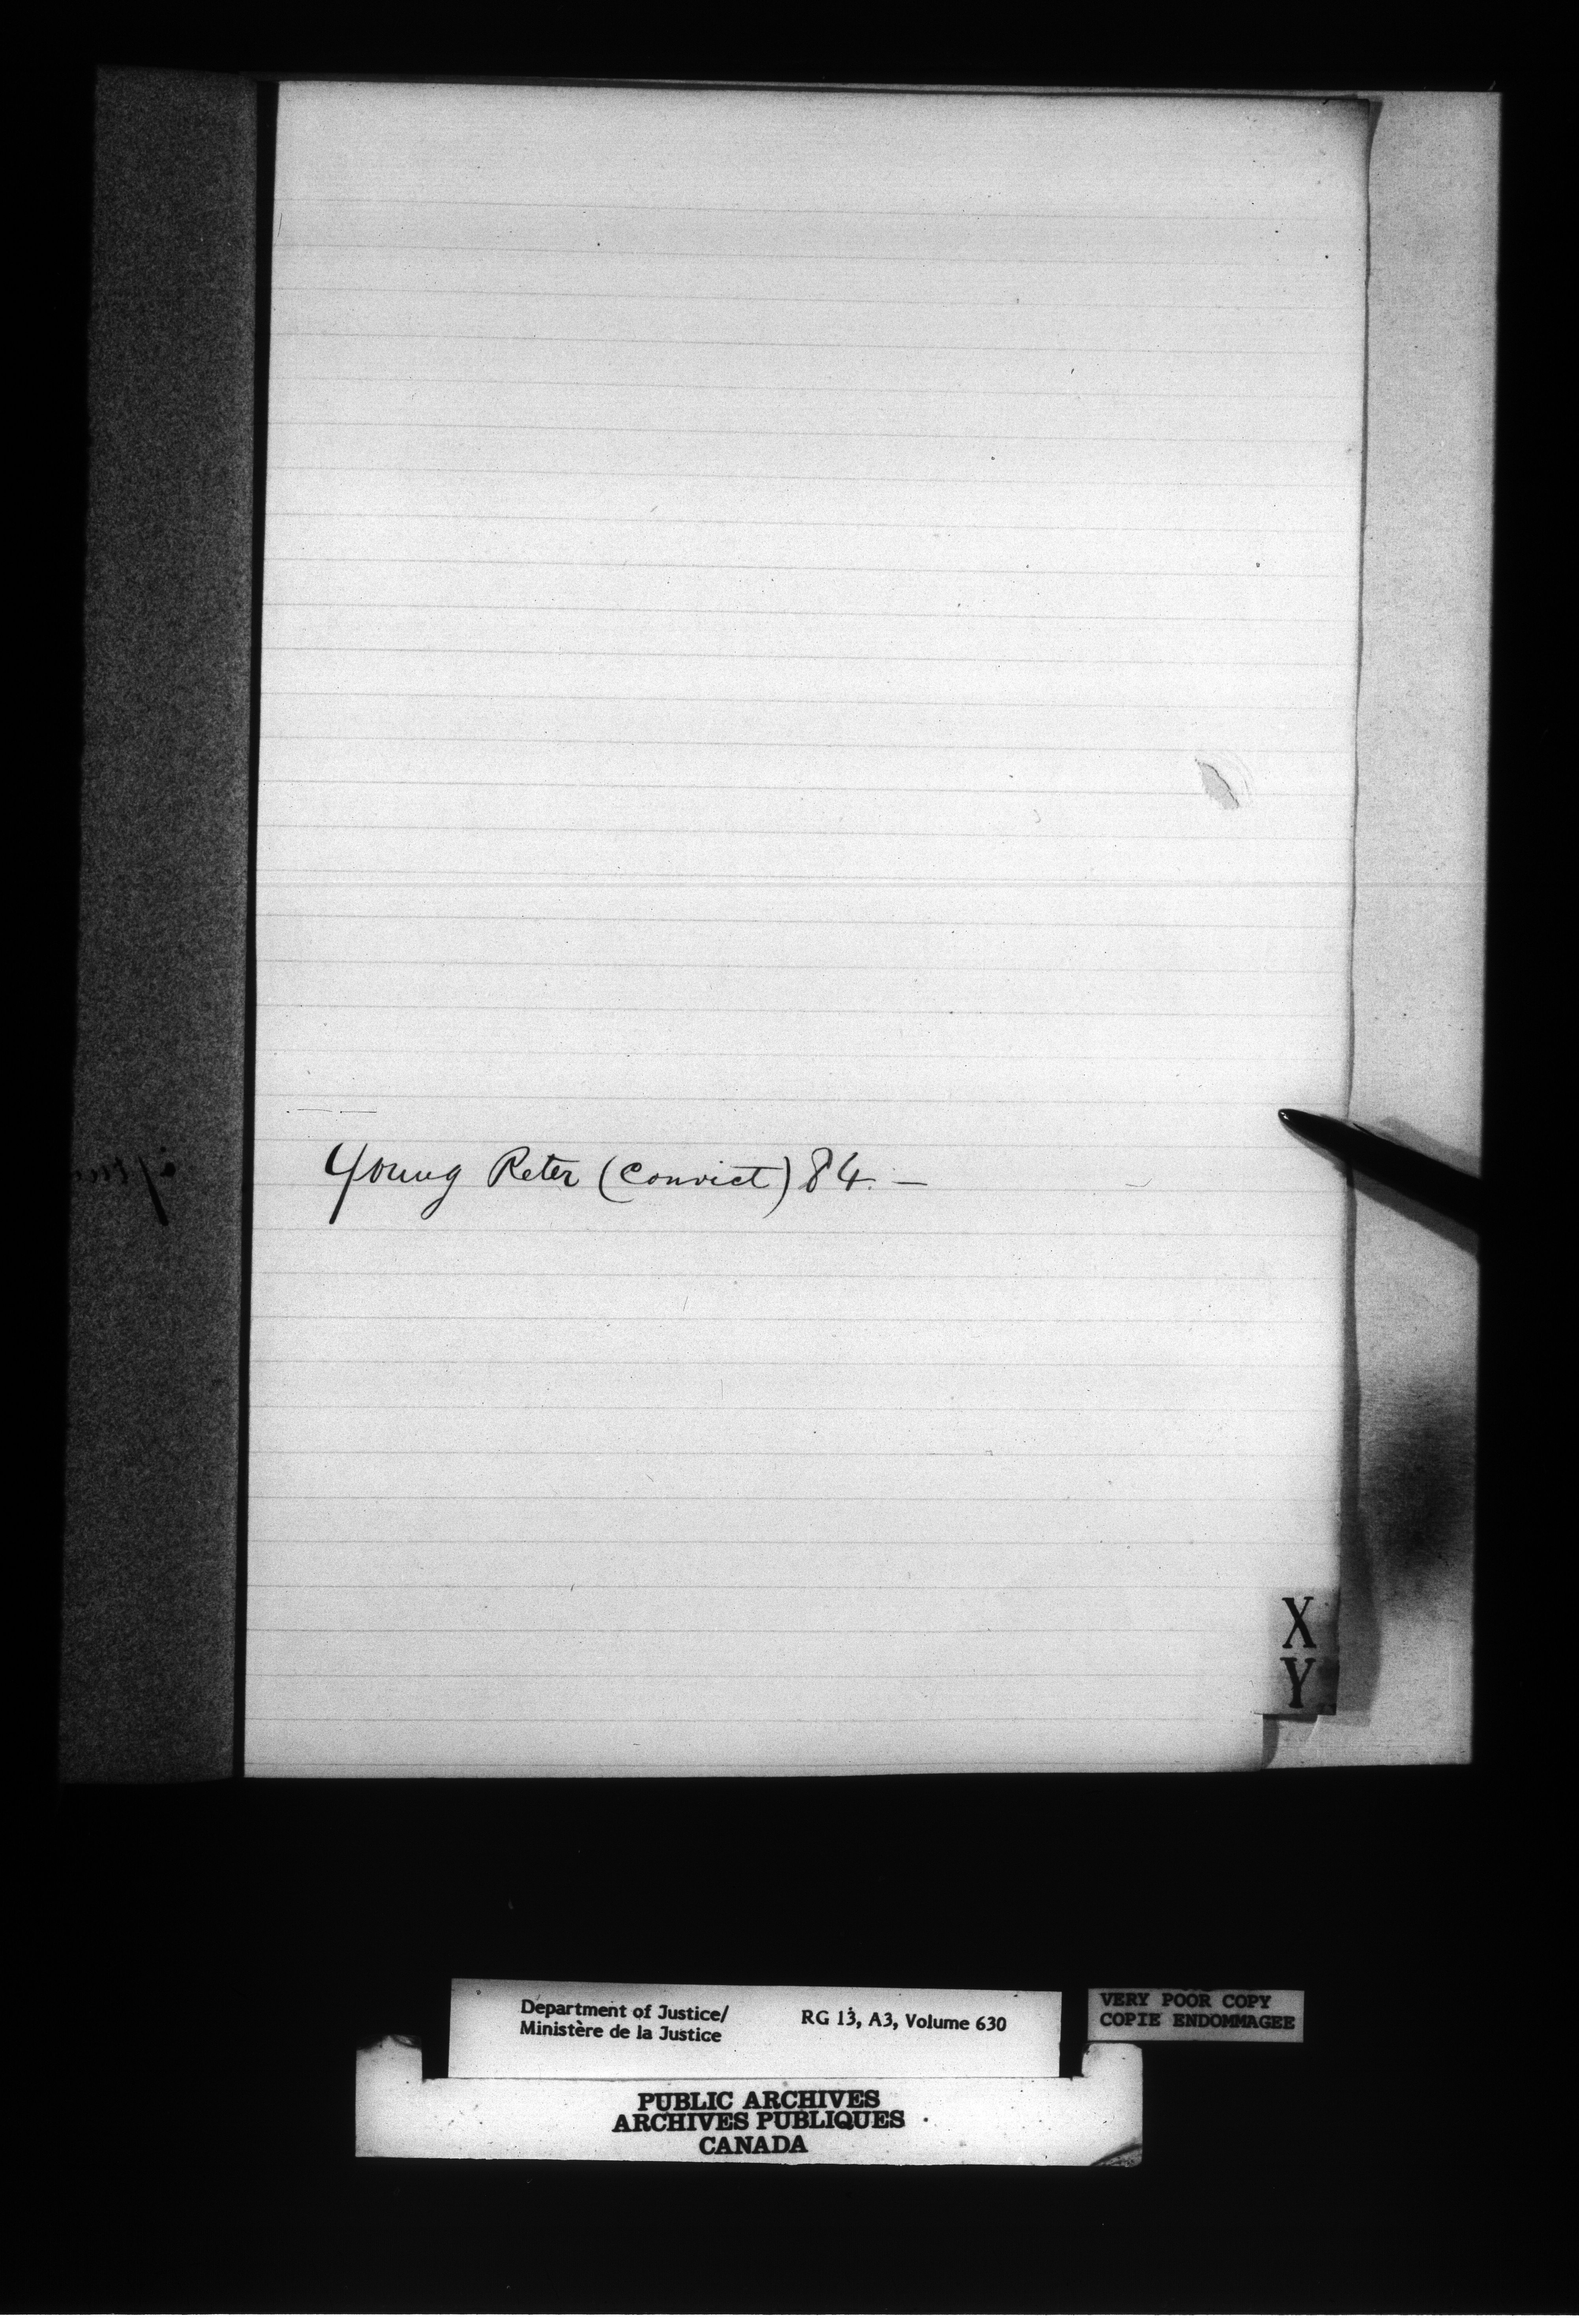 Young Peter (Convict) 84. —
X
Y
Department of Justice/
Ministère de la Justice
RG 13, A3, Volume 630
VERY POOR COPY
COPIE ENDOMMAGEE
PUBLIC ARCHIVES
ARCHIVES PUBLIQUES
CANADA